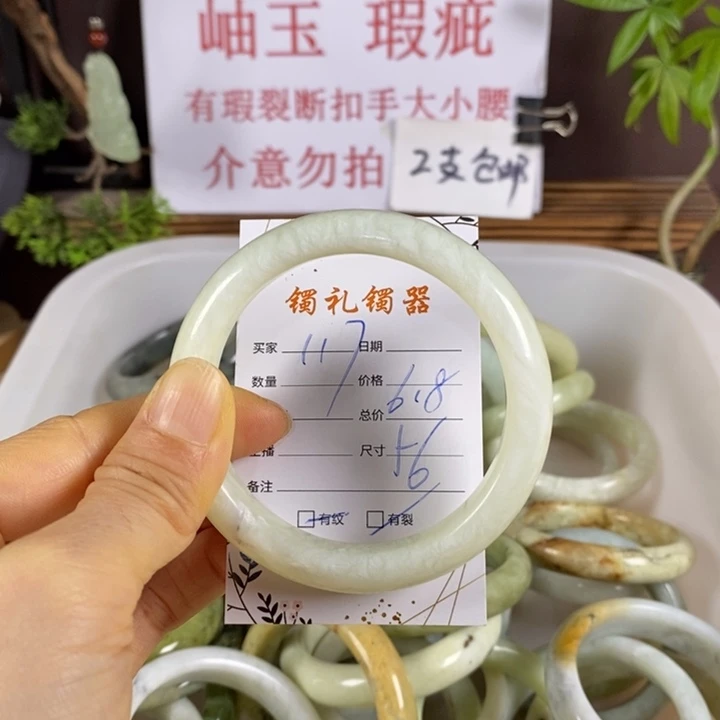 岫玉 瑕疵
有瑕裂断扣手大小腰
介意勿拍
2支包邮
镯礼镯器
买家 117 日期
数量 价格 6.8
总价
播 尺寸 56
备注
□有纹 □有裂